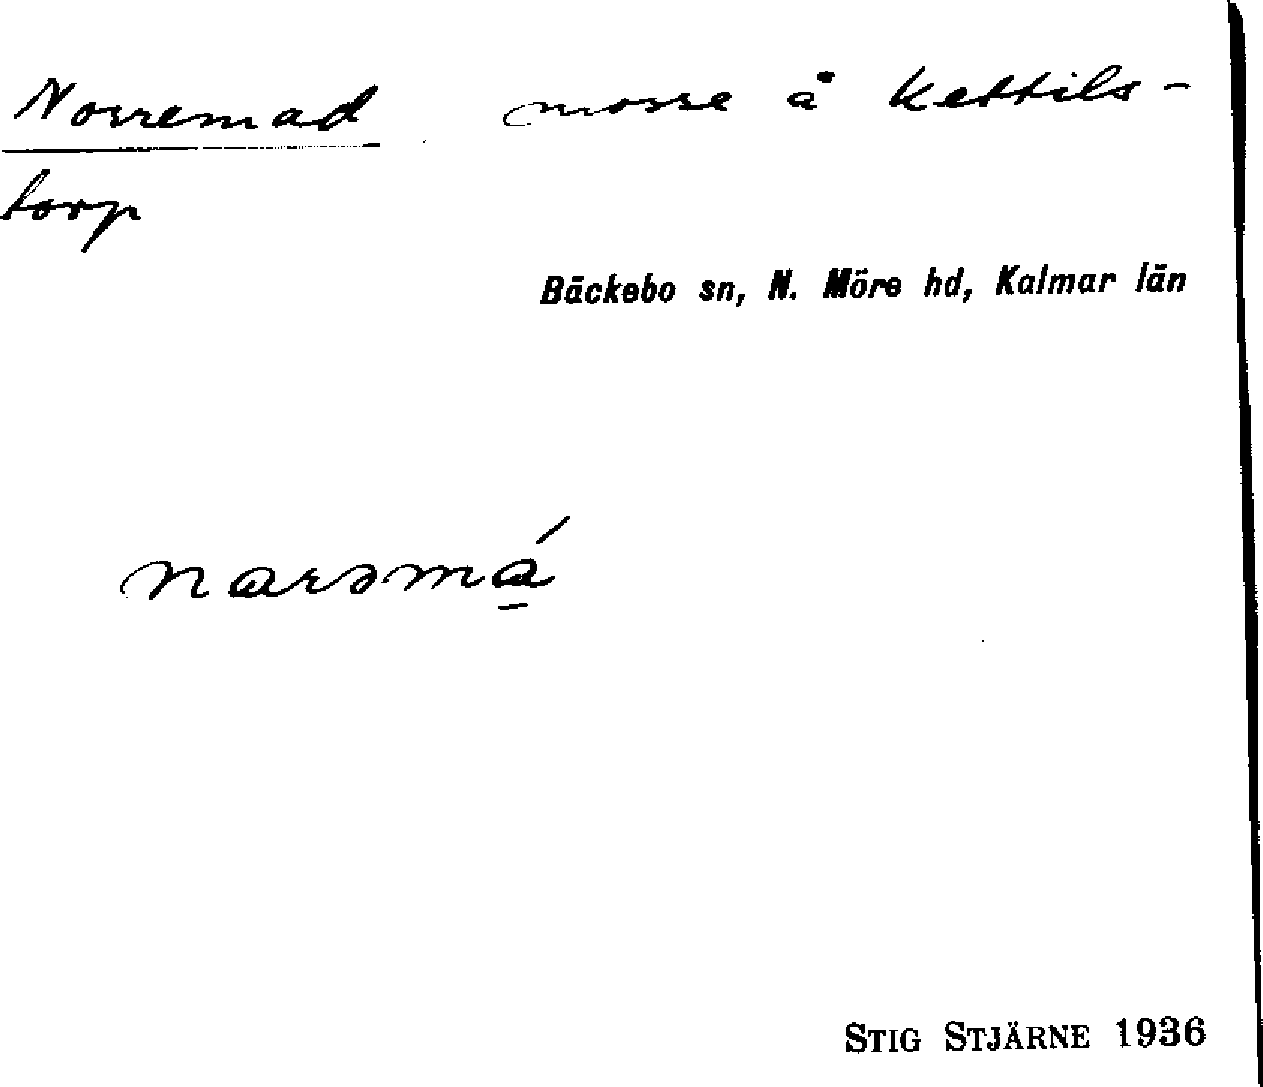 Norremad mosse å Kettils-
torp
Bäckebo sn, N. Möre hd, Kalmar län
narəmá̱
STIG STJÄRNE 1936